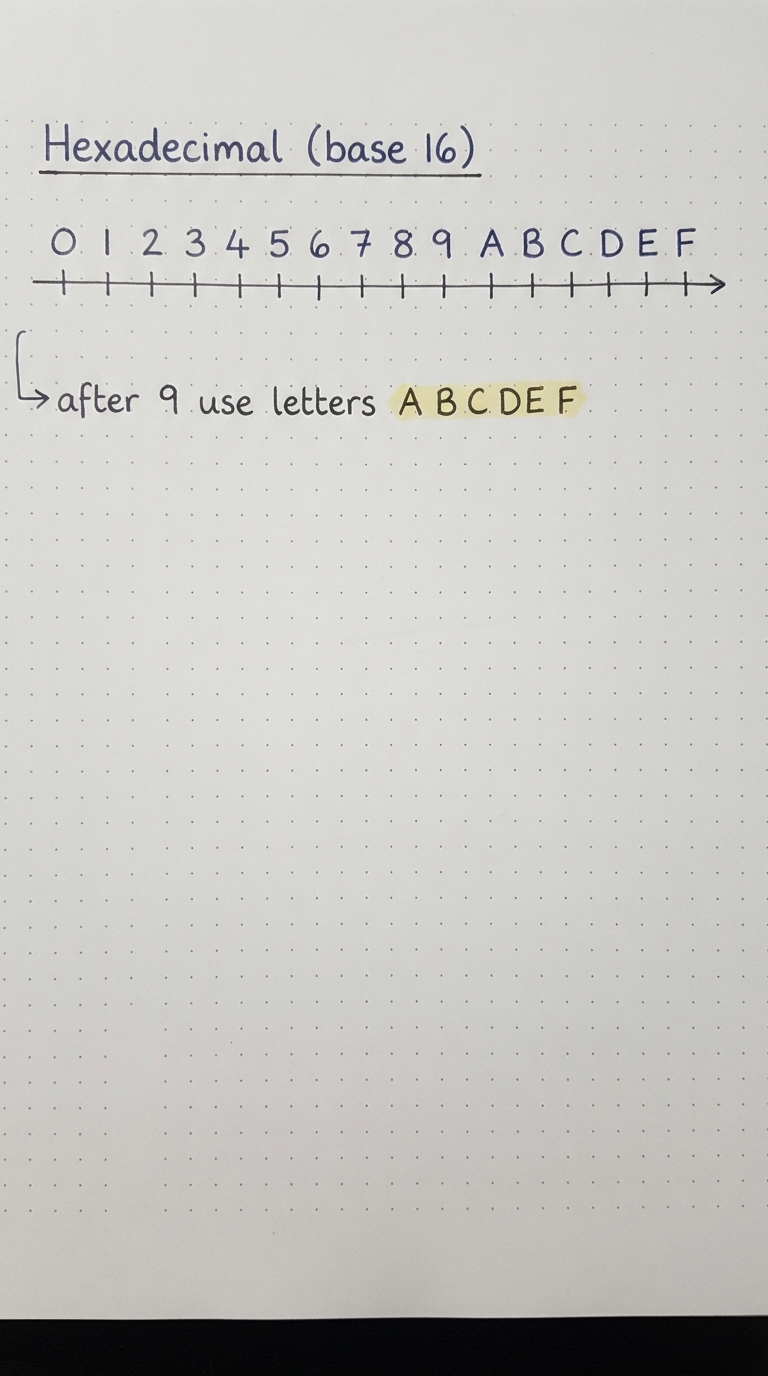 Hexadecimal (base 16)
0 1 2 3 4 5 6 7 8 9 A B C D E F
after 9 use letters A B C D E F